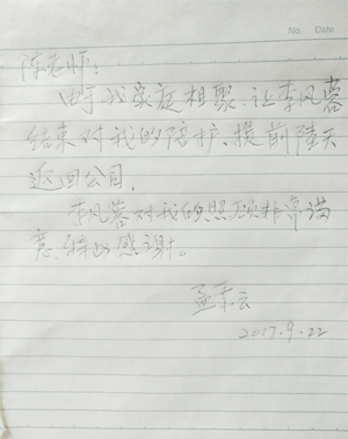 No. Date
陈老师:
由于我家庭相聚,让李凤蓉
结束对我的陪护、提前陆天
返回公司.
李凤蓉对我的照顾非常满
意,特此感谢。
孟素云
2017.9.22